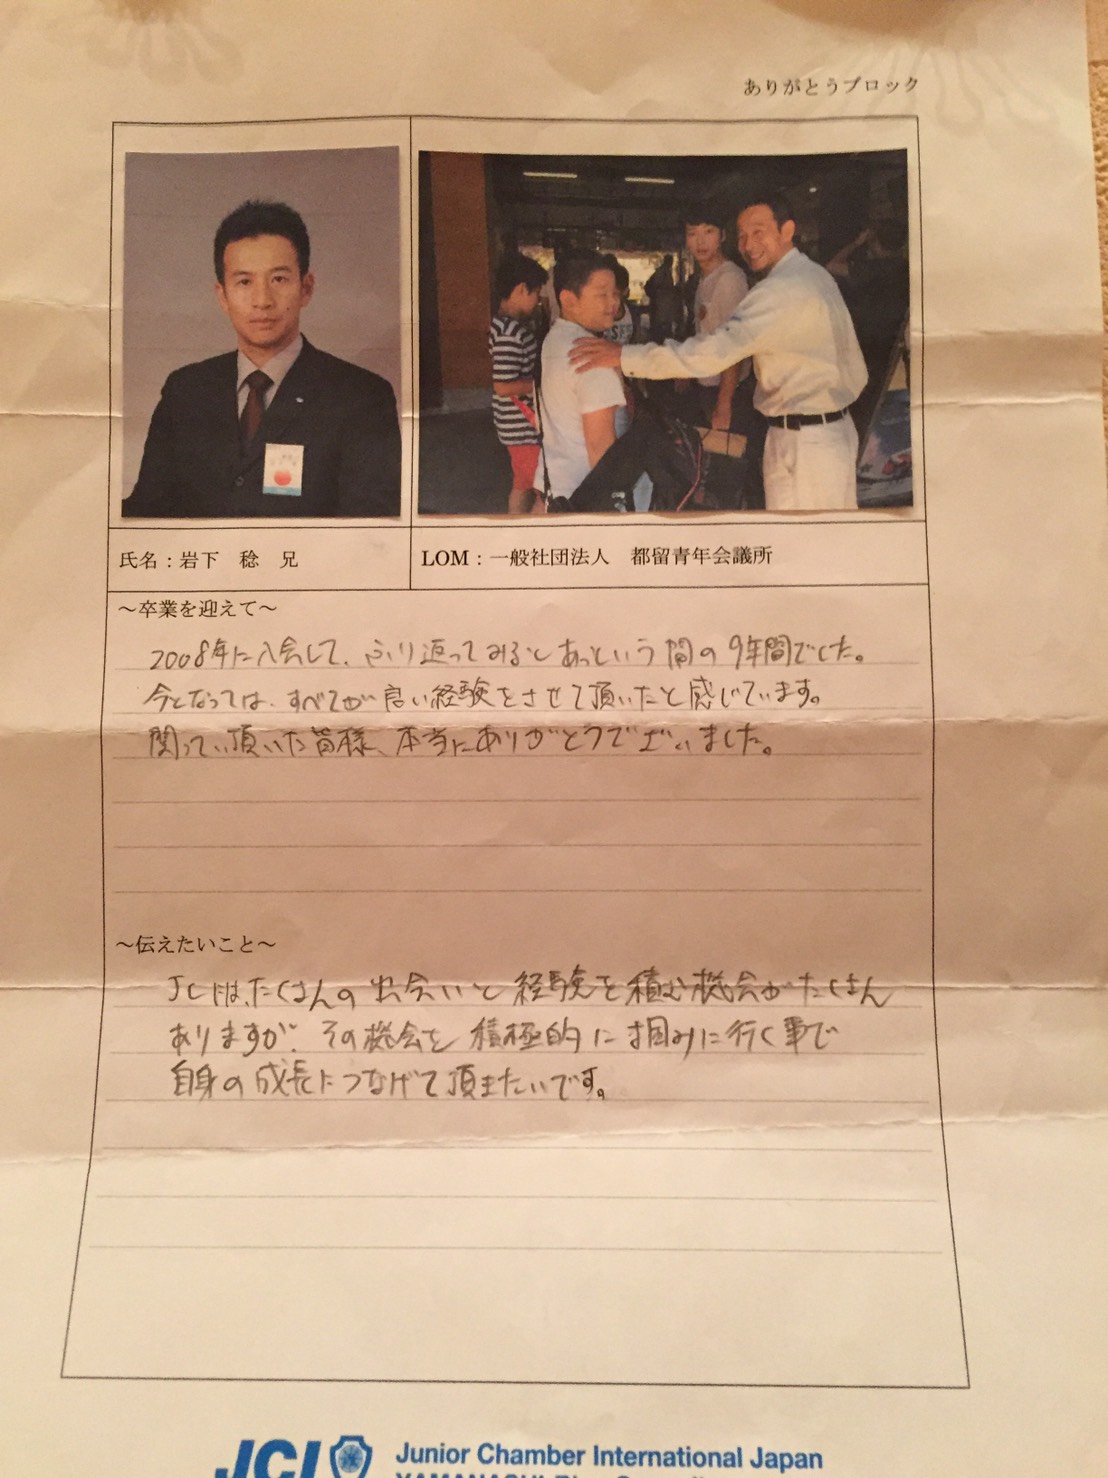 ありがとうブロック
氏名：岩下　稔　兄
LOM：一般社団法人　都留青年会議所
～卒業を迎えて～
2008年に入会して、ふり返ってみるとあっという間の9年間でした。
今となっては、すべてが良い経験をさせて頂いたと感じています。
関ってい頂いた皆様、本当にありがとうございました。
～伝えたいこと～
JCには、たくさんの出会いと経験を積む機会がたくさん
ありますが、その機会を積極的に掴みに行く事で
自身の成長につなげて頂きたいです。
JCI Junior Chamber International Japan
YAMANASHI